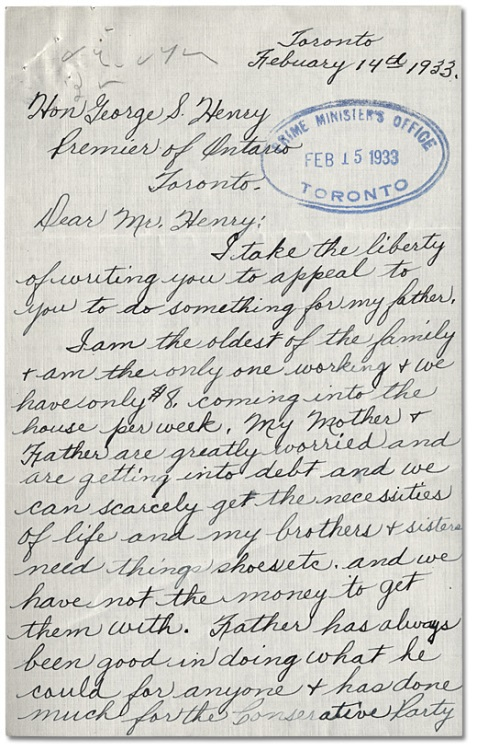 Toronto
Febuary 14th 1933.
Hon George S. Henry
Premier of Ontario
Toronto.
PRIME MINISTER'S OFFICE
FEB 15 1933
TORONTO
Dear Mr. Henry:
I take the liberty
of writing you to appeal to
you to do something for my father.
I am the oldest of the family
+ am the only one working + we
have only $8. coming into the
house per week. My Mother +
Father are greatly worried and
are getting into debt and we
can scarcely get the necessities
of life and my brothers + sisters
need things shoes etc. and we
have not the money to get
them with. Father has always
been good in doing what he
could for anyone + has done
much for the Conserative Party